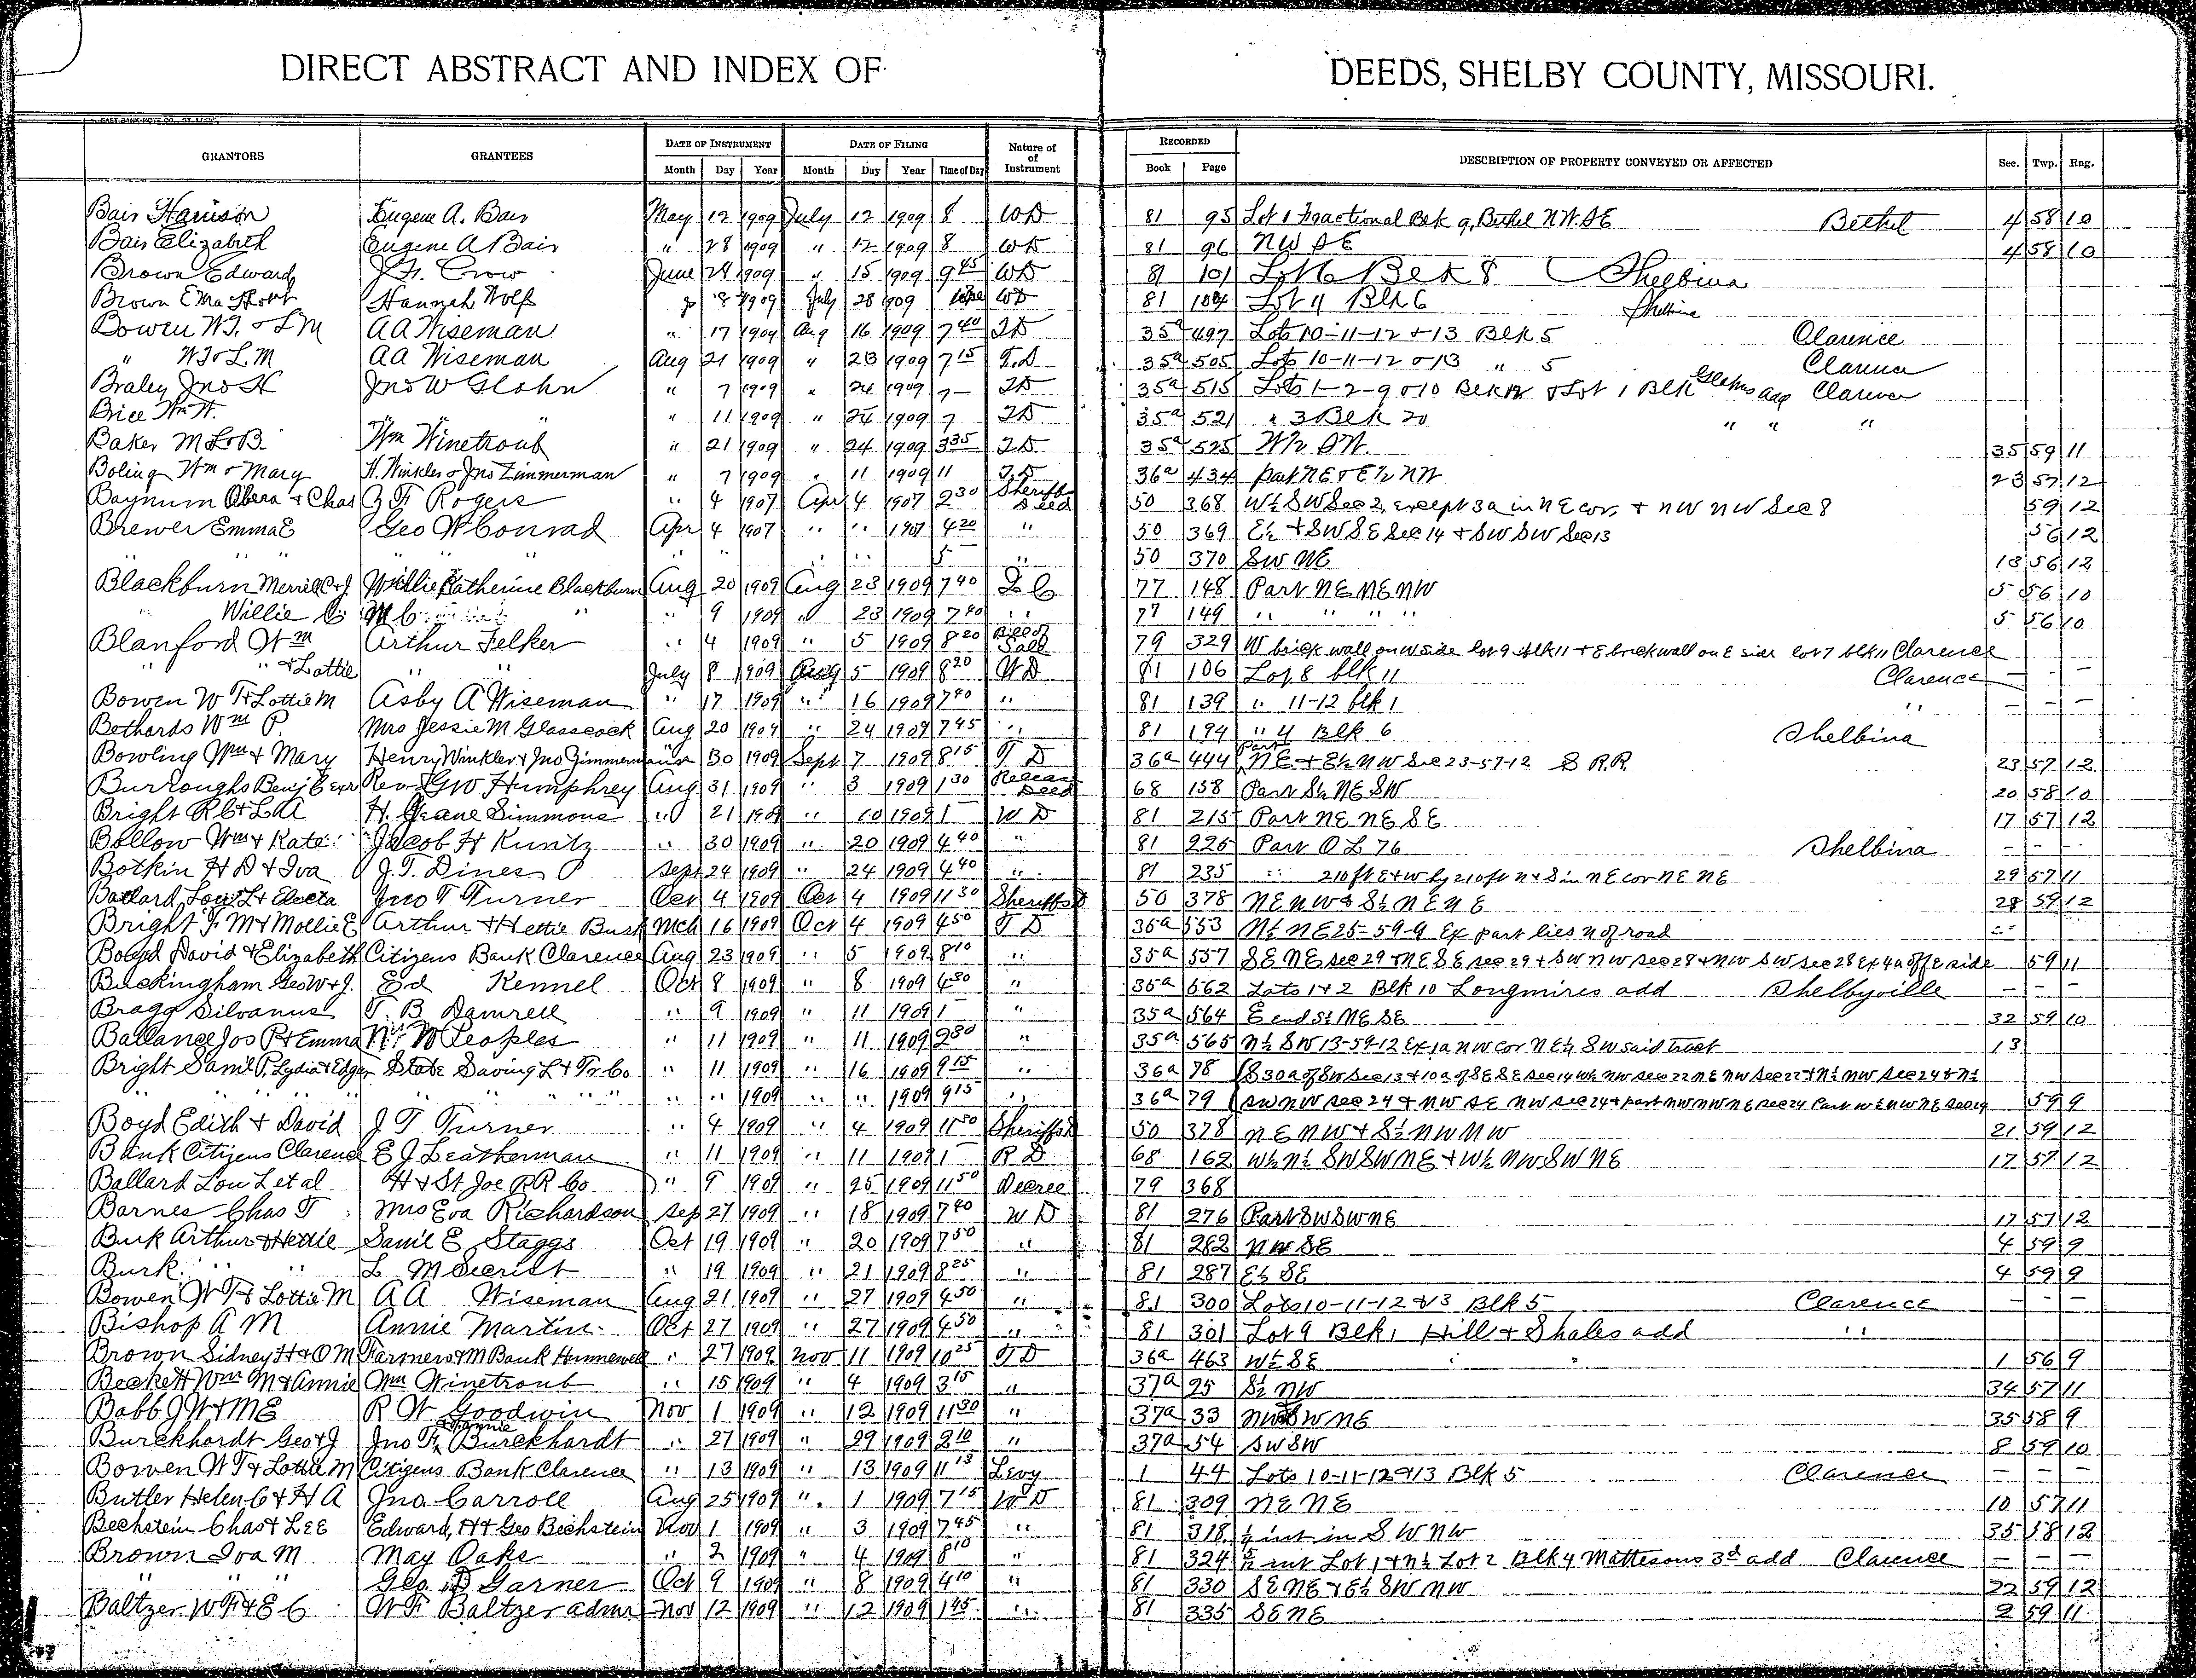 DIRECT ABSTRACT AND INDEX OF DEEDS, SHELBY COUNTY, MISSOURI.
GRANTORS GRANTEES DATE OF INSTRUMENT DATE OF FILING Nature of Instrument RECORDED DESCRIPTION OF PROPERTY CONVEYED OR AFFECTED Sec. Twp. Rng.
Month Day Year Month Day Year Time of Day Book Page
Bair Harrison Eugene A. Bair May 12 1909 July 12 1909 8 WD 81 95 Lot 1 Fractional Blk 9, Bethel NW SE Bethel 4 58 10
Bair Elizabeth Eugene A Bair " 28 1909 " 12 1909 8 WD 81 96 NW SE 4 58 10
Brown Edward J. F. Crow June 28 1909 " 15 1909 9 45 WD 81 101 Lot 6 Blk 8 Shelbina
Brown Hannah Wolf 8 1909 July 28 1909 WD 81 104 Lot 11 Blk 6 Shelbina
Bowen W.T. & L M A A Wiseman " 17 1909 Aug 16 1909 7 40 TD 35a 497 Lots 10-11-12 + 13 Blk 5 Clarence
" W T & L.M A A Wiseman Aug 21 1909 " 23 1909 7 15 T.D 35a 505 Lots 10-11-12 & 13 " 5 Clarence
Braley Jno H Jno W Glahn " 7 1909 " 24 1909 7 - TD 35a 515 Lots 1-2-9 & 10 Blk & Lot 1 Blk Glahns add Clarence
Brice Wm W. " " " 11 1909 " 24 1909 7 TD 35a 521 " 3 Blk 20 " " "
Baker M L & B Wm Winetroub " 21 1909 " 24 1909 3 35 TD 35a 525 W½ SW. 35 59 11
Boling Wm & Mary H. Winkler & Jno Zimmerman " 7 1909 " 11 1909 11 T.D 36a 434 part NE & E½ NW 23 57 12
Baynum & Chas Rogers " 4 1907 Apr 4 1907 2 30 Sheriffs Deed 50 368 W½ SW Sec 2, except 3a in NE cor, + NW NW Sec 8 59 12
Brewer Emma E Geo W Conrad Apr 4 1907 " " 1907 4 20 " 50 369 E½ + SW SE Sec 14 + SW SW Sec 13 56 12
" " " " " " " " " " 5 - " 50 370 SW NE 13 56 12
Blackburn Merrill C & J Willie Katherine Blackburn Aug 20 1909 Aug 23 1909 7 40 77 148 Part NE NE NW 5 56 10
" Willie M C " " 9 1909 " 23 1909 7 40 " 77 149 " " " " 5 56 10
Blanford Wm Arthur Felker " 4 1909 " 5 1909 8 20 Bill of Sale 79 329 W brick wall on W side lot 9 blk 11 + E brick wall on E side lot 7 blk 11 Clarence
" " & Lottie " " July 8 1909 Aug 5 1909 8 20 WD 81 106 Lot 8 blk 11 Clarence - -
Bowen W T & Lottie M Asby A Wiseman " 17 1909 " 16 1909 7 40 " 81 139 " 11-12 blk 1 " - - -
Bethards Wm P. Mrs Jessie M Glasscock Aug 20 1909 " 24 1909 7 45 " 81 194 " 4 Blk 6 Shelbina
Bowling Wm & Mary Henry Winkler & Jno Zimmerman 30 1909 Sept 7 1909 8 15 T D 36a 444 Part NE + E½ NW Sec 23-57-12 S R.R. 23 57 12
Burroughs Benj C Exr Rev. G W Humphrey Aug 31 1909 " 3 1909 1 30 Release Deed 68 158 Part S½ NE SW 20 58 10
Bright R C & L A H. Geane Simmons " 21 1909 " 10 1909 1 - W D 81 215 Part NE NE SE 17 57 12
Bollow Wm & Kate Jacob H Kuntz " 30 1909 " 20 1909 4 40 " 81 225 Part O L 76 Shelbina - - -
Botkin H D & Iva J. T. Dines Sept 24 1909 " 24 1909 4 40 " 81 235 " 210 ft E + W by 210 ft N + S in NE cor NE NE 29 57 11
Ballard, Lou L & Electa Jno T Turner Oct 4 1909 Oct 4 1909 11 30 Sheriffs D 50 378 NE NW & S½ NE NE 28 59 12
Bright F M & Mollie E Arthur & Hettie Burk Mch 16 1909 Oct 4 1909 4 50 T D 35a 553 N½ NE 25-59-9 Ex part lies N of road
Boyd David & Elizabeth Citizens Bank Clarence Aug 23 1909 " 5 1909 8 10 " 35a 557 SE NE sec 29 + NE SE sec 29 + SW NW sec 28 + NW SW sec 28 Ex 4a off E side 59 11
Buckingham Geo W & J. Ed Kennel Oct 8 1909 " 8 1909 4 30 " 35a 562 Lots 1 & 2 Blk 10 Longmires add Shelbyville - - -
Bragg Silvanus T. B Damrell " 9 1909 " 11 1909 1 - " 35a 564 E end S½ NE SE 32 59 10
Ballance Jos P & Emma N. W Peoples " 11 1909 " 11 1909 " 35a 565 N½ SW 13-59-12 Ex 1a NW cor NE¼ SW said tract 13
Bright Saml P. Lydia & Edgar State Saving L & Tr Co " 11 1909 " 16 1909 9 15 " 36a 78 S 30a of SW Sec 13 + 10a of SE SE Sec 14 W½ NW sec 22 NE NW Sec 22 + N½ NW Sec 24 & N½
" " " " " " " " " " 1909 " " 1909 9 15 " 36a 79 SW NW sec 24 + NW SE NW sec 24 + part NW NW NE sec 24 59 9
Boyd Edith & David J T Turner " 4 1909 " 4 1909 11 30 Sheriffs D 50 378 NE NW + S½ NW NW 21 59 12
Bank Citizens Clarence E J Leatherman " 11 1909 " 11 1909 1 - R D 68 162 W½ N½ SW SW NE + W½ NW SW NE 17 57 12
Ballard Lou L et al H & St Joe RR Co " 9 1909 " 25 1909 11 50 Decree 79 368
Barnes Chas T Mrs Eva Richardson Sep 27 1909 " 18 1909 7 40 W D 81 276 Part SW SW NE 17 57 12
Burk Arthur & Hettie Saml E Staggs Oct 19 1909 " 20 1909 7 50 " 81 282 NW SE 4 59 9
Burk " " L M Secrist " 19 1909 " 21 1909 8 25 " 81 287 E½ SE 4 59 9
Bowen W T & Lottie M A A Wiseman Aug 21 1909 " 27 1909 4 50 " 81 300 Lots 10-11-12 & 13 Blk 5 Clarence - - -
Bishop A M Annie Martin Oct 27 1909 " 27 1909 4 50 " 81 301 Lot 9 Blk 1 Hill & Shales add "
Brown Sidney H & O M Farmers & M Bank Hunnewell " 27 1909 Nov 11 1909 10 25 T D 36a 463 W½ SE 1 56 9
Beckett Wm M & Annie Wm Winetroub " 15 1909 " 4 1909 3 15 " 37a 25 S½ NW 34 57 11
Babb J W & M E R W Goodwin Nov 1 1909 " 12 1909 11 30 " 37a 33 NW SW NE 35 58 9
Burckhardt Geo & J Jno F. & Fannie Burckhardt " 27 1909 " 29 1909 2 10 " 37a 54 SW SW 8 59 10
Bowen W T & Lottie M Citizens Bank Clarence " 13 1909 " 13 1909 11 15 Levy 1 44 Lots 10-11-12 & 13 Blk 5 Clarence - - -
Butler Helen C & H A Jno. Carroll Aug 25 1909 " 1 1909 7 15 W D 81 309 NE NE 10 57 11
Bechstein Chas & Lee Edward, H & Geo Bechstein Nov 1 1909 " 3 1909 7 45 " 81 318 int in SW NW 35 58 12
Brown Iva M May Oaks " 2 1909 " 4 1909 8 10 " 81 324 int Lot 1 & N½ Lot 2 Blk 4 Mattesons 3d add Clarence - - -
" " " Geo D Garner Oct 9 1909 " 8 1909 4 10 " 81 330 SE NE + E½ SW NW 22 59 12
Baltzer W F & E C W F Baltzer admr Nov 12 1909 " 12 1909 1 45 " 81 335 SE NE 2 59 11